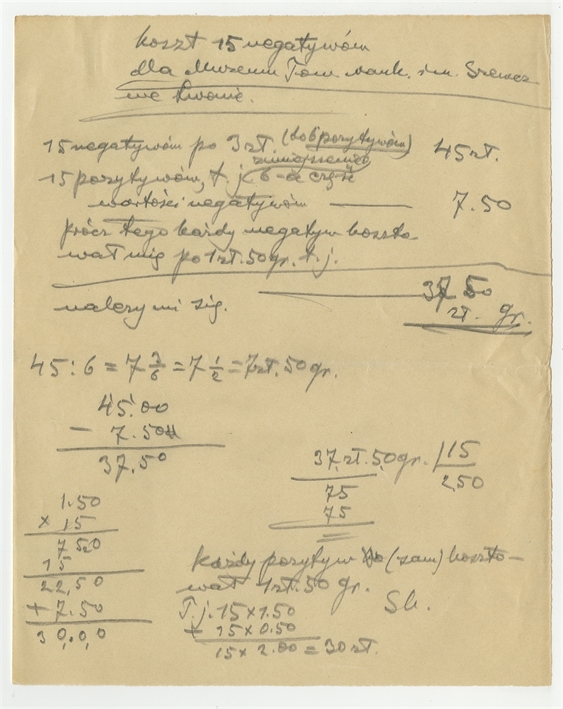 koszt 15 negatywów
dla Muzeum Tow. nauk. im. Szewcz
we Lwowie.
15 negatywów po 3 zł. (do 6 pozytywów) 45 zł.
zmniejszonego
15 pozytywów, t. j. 6-a część
wartości negatywów — 7.50
prócz tego każdy negatyw koszto-
wał mię po 1 zł. 50 gr. t. j.
należy mi się. — 37 50
zł. gr.
45 : 6 = 7 3/6 = 7 1/2 = 7 zł. 50 gr.
45.00
- 7.50
37.50
37 zł. 50 gr. | 15
75 2,50
75
1.50
× 15
7 50
15
22,50
+ 7.50
30,0,0
każdy pozytyw (sam) koszto-
wał 1 zł. 50 gr.
T. j. 15 × 1.50
+ 15 × 0.50
15 × 2.00 = 30 zł.